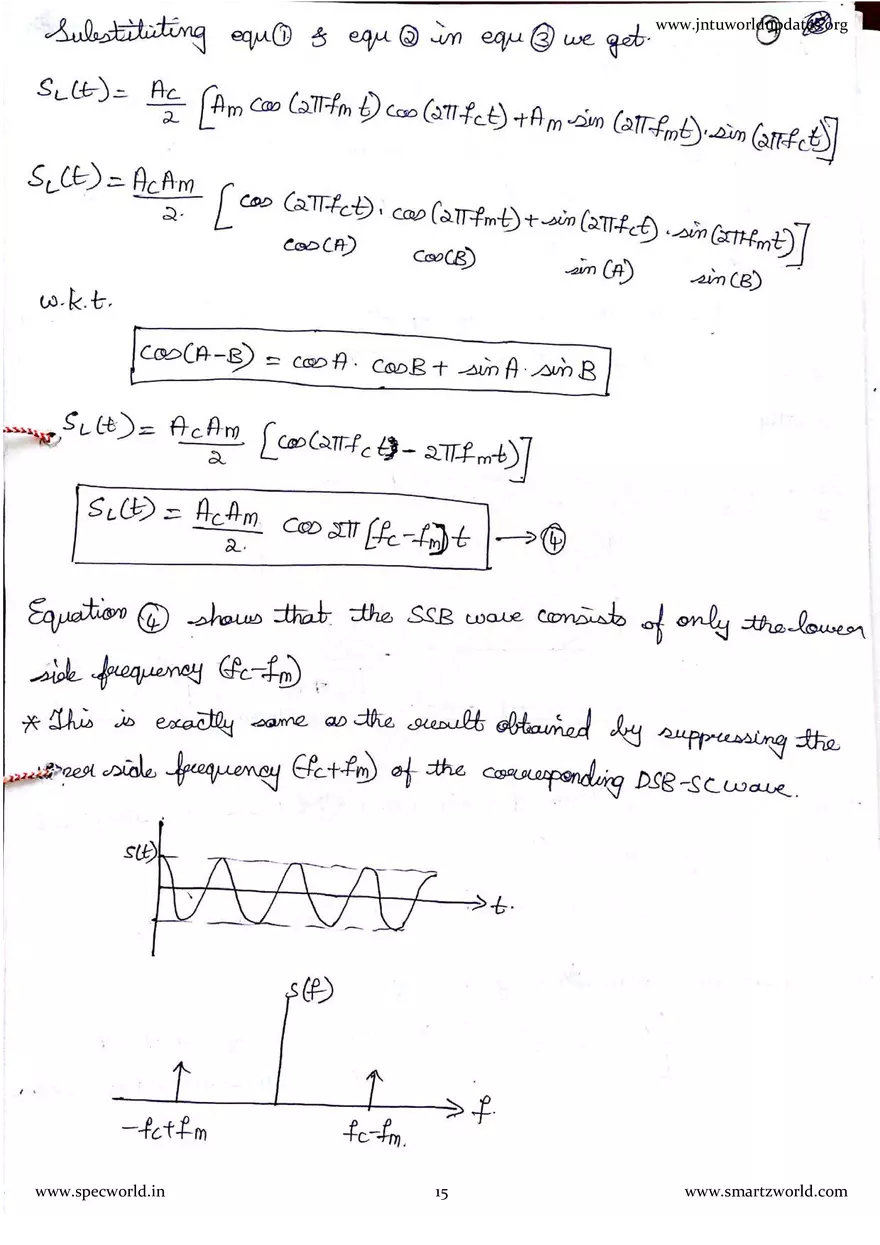 www.jntuworldupdates.org
Substituting equ① & equ② in equ③ we get.
S_L(t) = A_c/2 [A_m cos(2πf_m t) cos(2πf_c t) + A_m sin(2πf_m t)·sin(2πf_c t)]
S_L(t) = A_c A_m/2. [cos(2πf_c t). cos(2πf_m t) + sin(2πf_c t)·sin(2πf_m t)]
cos(A) cos(B) sin(A) sin(B)
w.k.t.
cos(A-B) = cos A. cos B + sin A. sin B
S_L(t) = A_c A_m/2 [cos(2πf_c t - 2πf_m t)]
S_L(t) = A_c A_m/2. cos 2π [f_c - f_m] t → ④
Equation ④ shows that the SSB wave consists of only the lower
side frequency (f_c-f_m)
* This is exactly same as the result obtained by suppressing the
per side frequency (f_c+f_m) of the corresponding DSB-SC wave.
S(t)
t.
S(f)
f.
-f_c+f_m f_c-f_m.
www.specworld.in 15 www.smartzworld.com